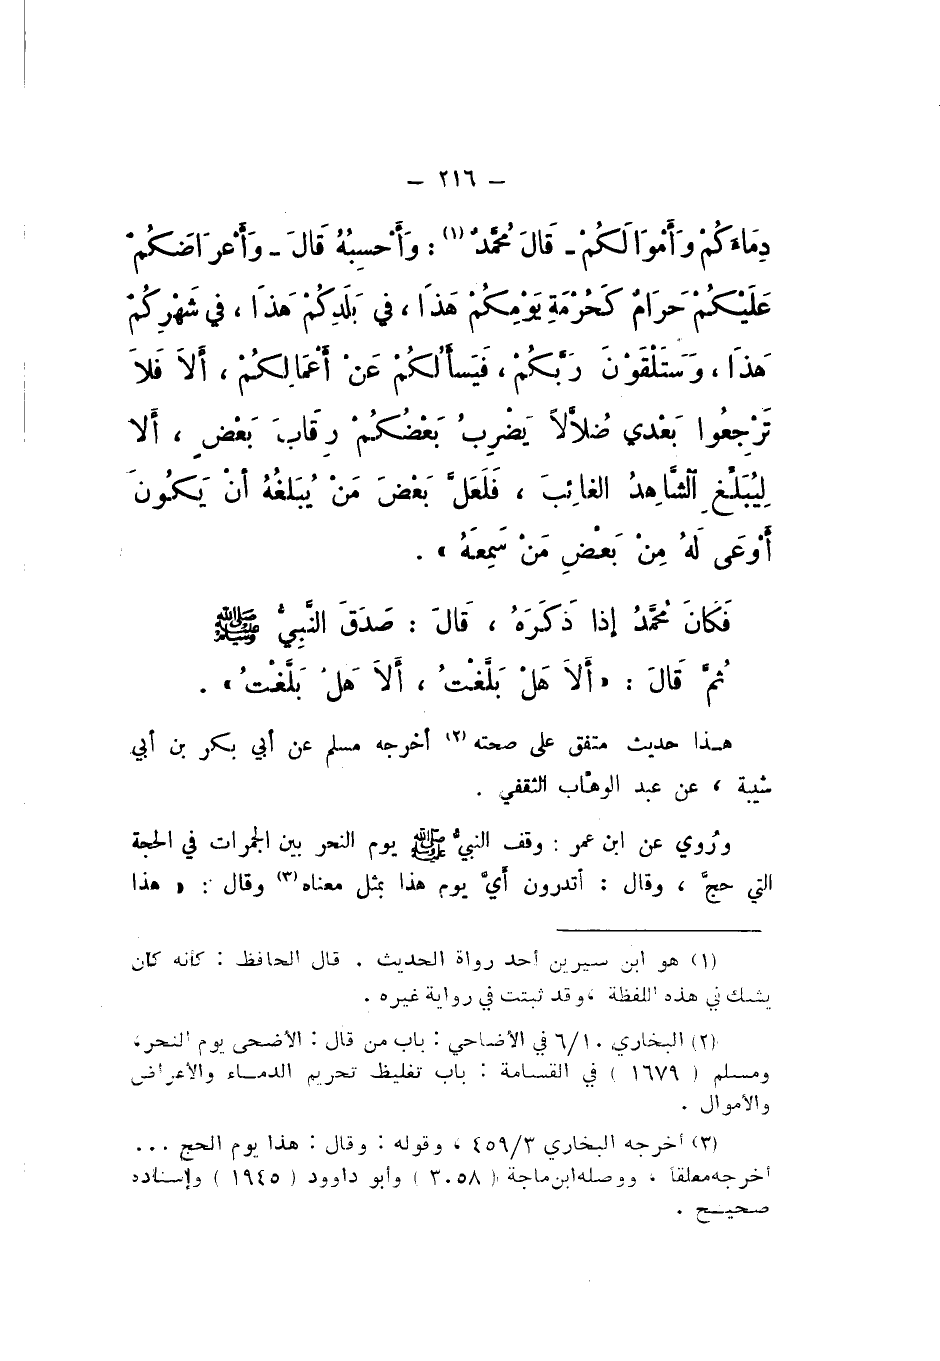 – ٢١٦ –
دِمَاءَكُمْ وَأَمْوَالَكُمْ – قَالَ مُحَمَّدٌ (١) : وَأَحْسِبُهُ قَالَ – وَأَعْرَاضَكُمْ
عَلَيْكُمْ حَرَامٌ كَحُرْمَةِ يَوْمِكُمْ هَذَا ، في بَلَدِكُمْ هَذَا ، في شَهْرِكُمْ
هَذَا ، وَسَتَلْقَوْنَ رَبَّكُمْ ، فَيَسأَلُكُمْ عَنْ أَعْمَالِكُمْ ، أَلاَ فَلاَ
تَرْجِعُوا بَعْدي ضُلاَّلاً يَضْرِبُ بَعْضُكُمْ رِقَابَ بَعْضٍ ، أَلا
لِيُبَلِّغِ الشَّاهِدُ الغائِبَ ، فَلَعَلَّ بَعْضَ مَنْ يُبَلِّغُهُ أنْ يَكُونَ
أَوْعَى لَهُ مِنْ بَعْضِ مَنْ سَمِعَهُ » .
فَكَانَ مُحَمَّدُ إذا ذَكَرَهُ ، قَالَ : صَدَقَ النَّبِيُّ ﷺ
ثُمَّ قَالَ : « أَلاَ هَلْ بَلَّغْتُ ، أَلاَ هَلْ بَلَّغْتُ » .
هـذا حديث متفق على صحته (٢) أخرجه مسلم عن أبي بكر بن أبي
شيبة ، عن عبد الوهّاب الثقفي .
ورُوي عن ابن عمر : وقف النبيُّ ﷺ يوم النحر بين الجمرات في الحجة
التي حجَّ ، وقال : أتدرون أيَّ يوم هذا بمثل معناه (٣) وقال : « هذا
(١) هو ابن سيرين أحد رواة الحديث . قال الحافظ : كأنه كان
يشك في هذه اللفظة ، وقد ثبتت في رواية غيره .
(٢) البخاري ٦/١٠ في الأضاحي : باب من قال : الأضحى يوم النحر ،
ومسلم ( ١٦٧٩ ) في القسامة : باب تغليظ تحريم الدماء والأعراض
والأموال .
(٣) أخرجه البخاري ٤٥٩/٣ ، وقوله : وقال : هذا يوم الحج ...
أخرجه معلقاً ، ووصله ابن ماجة ( ٣٠٥٨ ) وأبو داوود ( ١٩٤٥ ) وإسناده
صحيح .